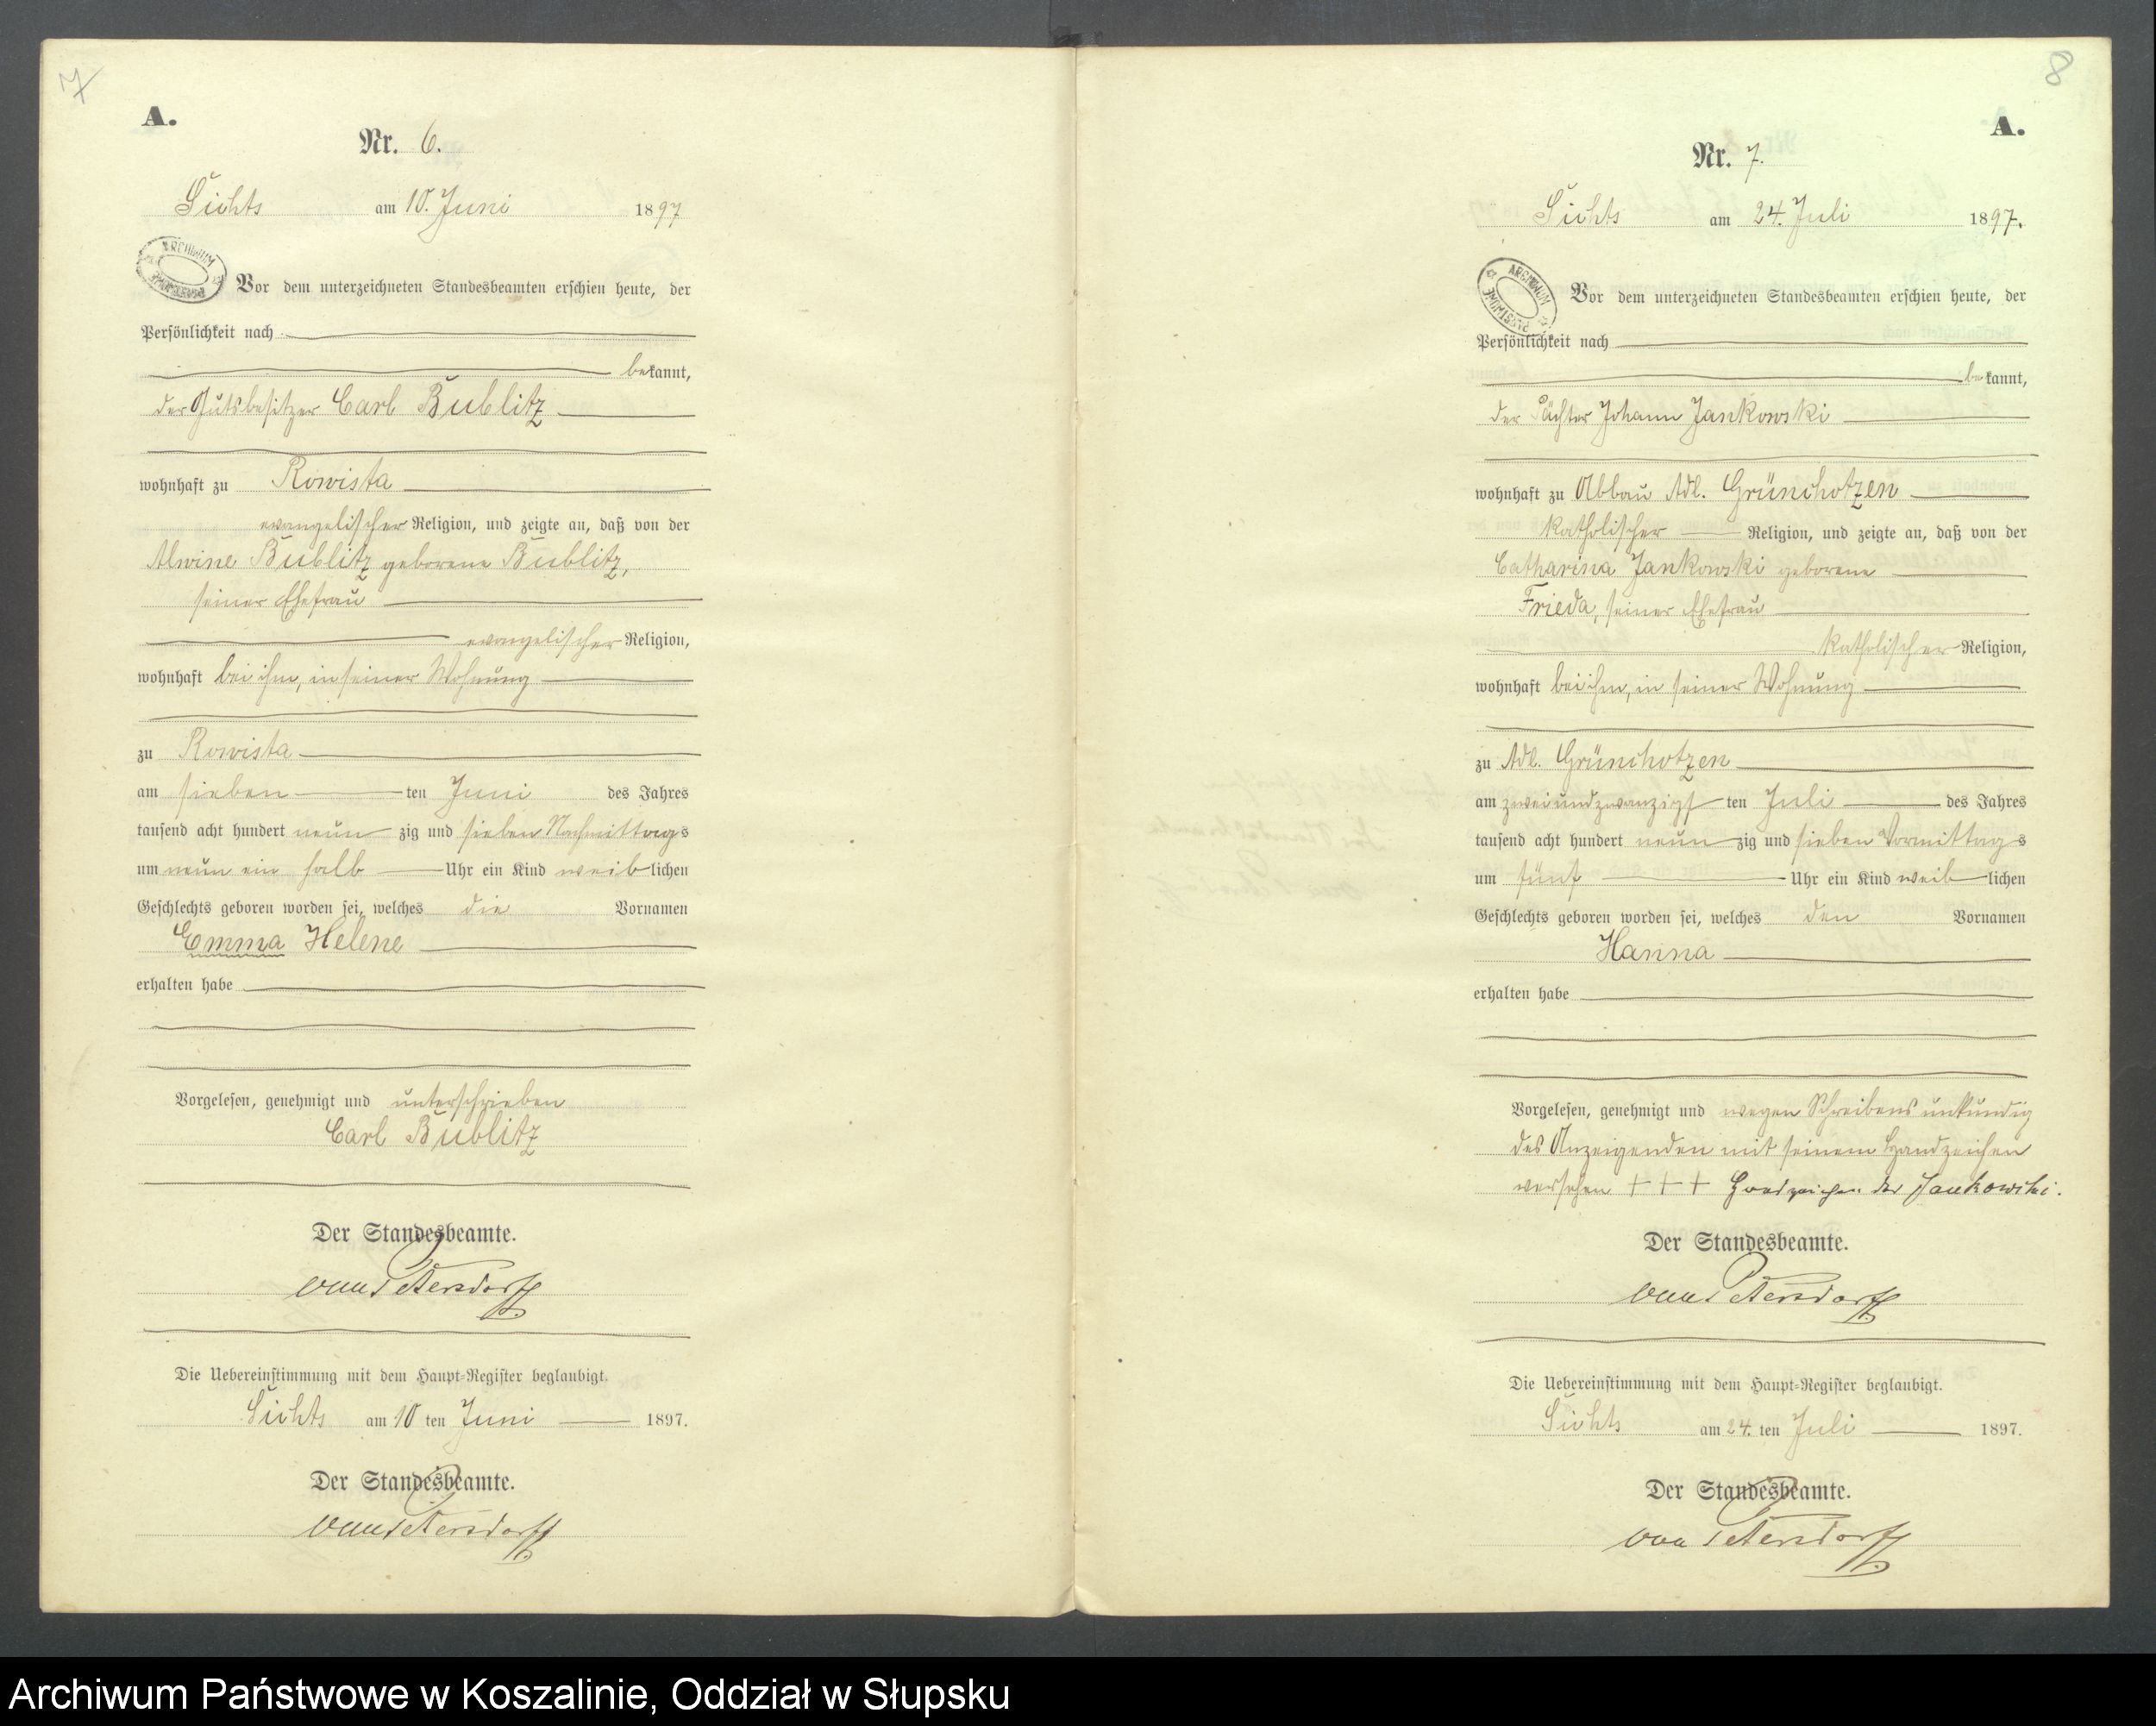 7
A.
Nr. 6.
Sichts am 10. Juni 1897
ARCHIWUM PAŃSTWOWE
Vor dem unterzeichneten Standesbeamten erschien heute, der
Persönlichkeit nach
bekannt,
der Gutsbesitzer Carl Bublitz
wohnhaft zu Rowista
evangelischer Religion, und zeigte an, daß von der
Alwine Bublitz geborene Bublitz,
seiner Ehefrau
evangelischer Religion,
wohnhaft bei ihm, in seiner Wohnung
zu Rowista
am sieben ten Juni des Jahres
tausend acht hundert neun zig und sieben Nachmittags
um neun ein halb Uhr ein Kind weiblichen
Geschlechts geboren worden sei, welches die Vornamen
Emma Helene
erhalten habe
Vorgelesen, genehmigt und unterschrieben
Carl Bublitz
Der Standesbeamte.
von Petersdorff
Die Uebereinstimmung mit dem Haupt-Register beglaubigt.
Sichts am 10 ten Juni 1897.
Der Standesbeamte.
von Petersdorff
8
A.
Nr. 7.
Sichts am 24. Juli 1897.
ARCHIWUM PAŃSTWOWE
Vor dem unterzeichneten Standesbeamten erschien heute, der
Persönlichkeit nach
bekannt,
der Pächter Johann Jankowski
wohnhaft zu Abbau Adl. Grünchotzen
katholischer Religion, und zeigte an, daß von der
Catharina Jankowski geborene
Frieda, seiner Ehefrau
katholischer Religion,
wohnhaft bei ihm, in seiner Wohnung
zu Adl. Grünchotzen
am zweiundzwanzigsten Juli des Jahres
tausend acht hundert neun zig und sieben Vormittags
um fünf Uhr ein Kind weiblichen
Geschlechts geboren worden sei, welches den Vornamen
Hanna
erhalten habe
Vorgelesen, genehmigt und wegen Schreibensunkundig
des Anzeigenden mit seinem Handzeichen
versehen +++ Handzeichen des Jankowski.
Der Standesbeamte.
von Petersdorff
Die Uebereinstimmung mit dem Haupt-Register beglaubigt.
Sichts am 24. ten Juli 1897.
Der Standesbeamte.
von Petersdorff
Archiwum Państwowe w Koszalinie, Oddział w Słupsku